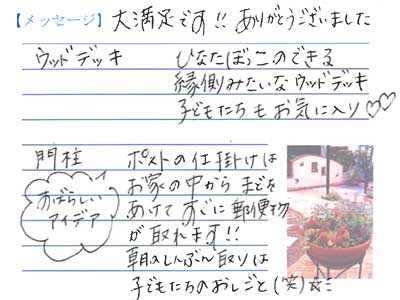 【メッセージ】 大満足です!! ありがとうございました
ウッドデッキ ひなたぼっこのできる
縁側みたいなウッドデッキ
子どもたちもお気に入り♡♡
門柱 ポストの仕掛けは
すばらしいアイデア お家の中からまどを
あけてすぐに郵便物
が取れます!!
朝のしんぶん取りは
子どもたちのおしごと(笑)☆ミ